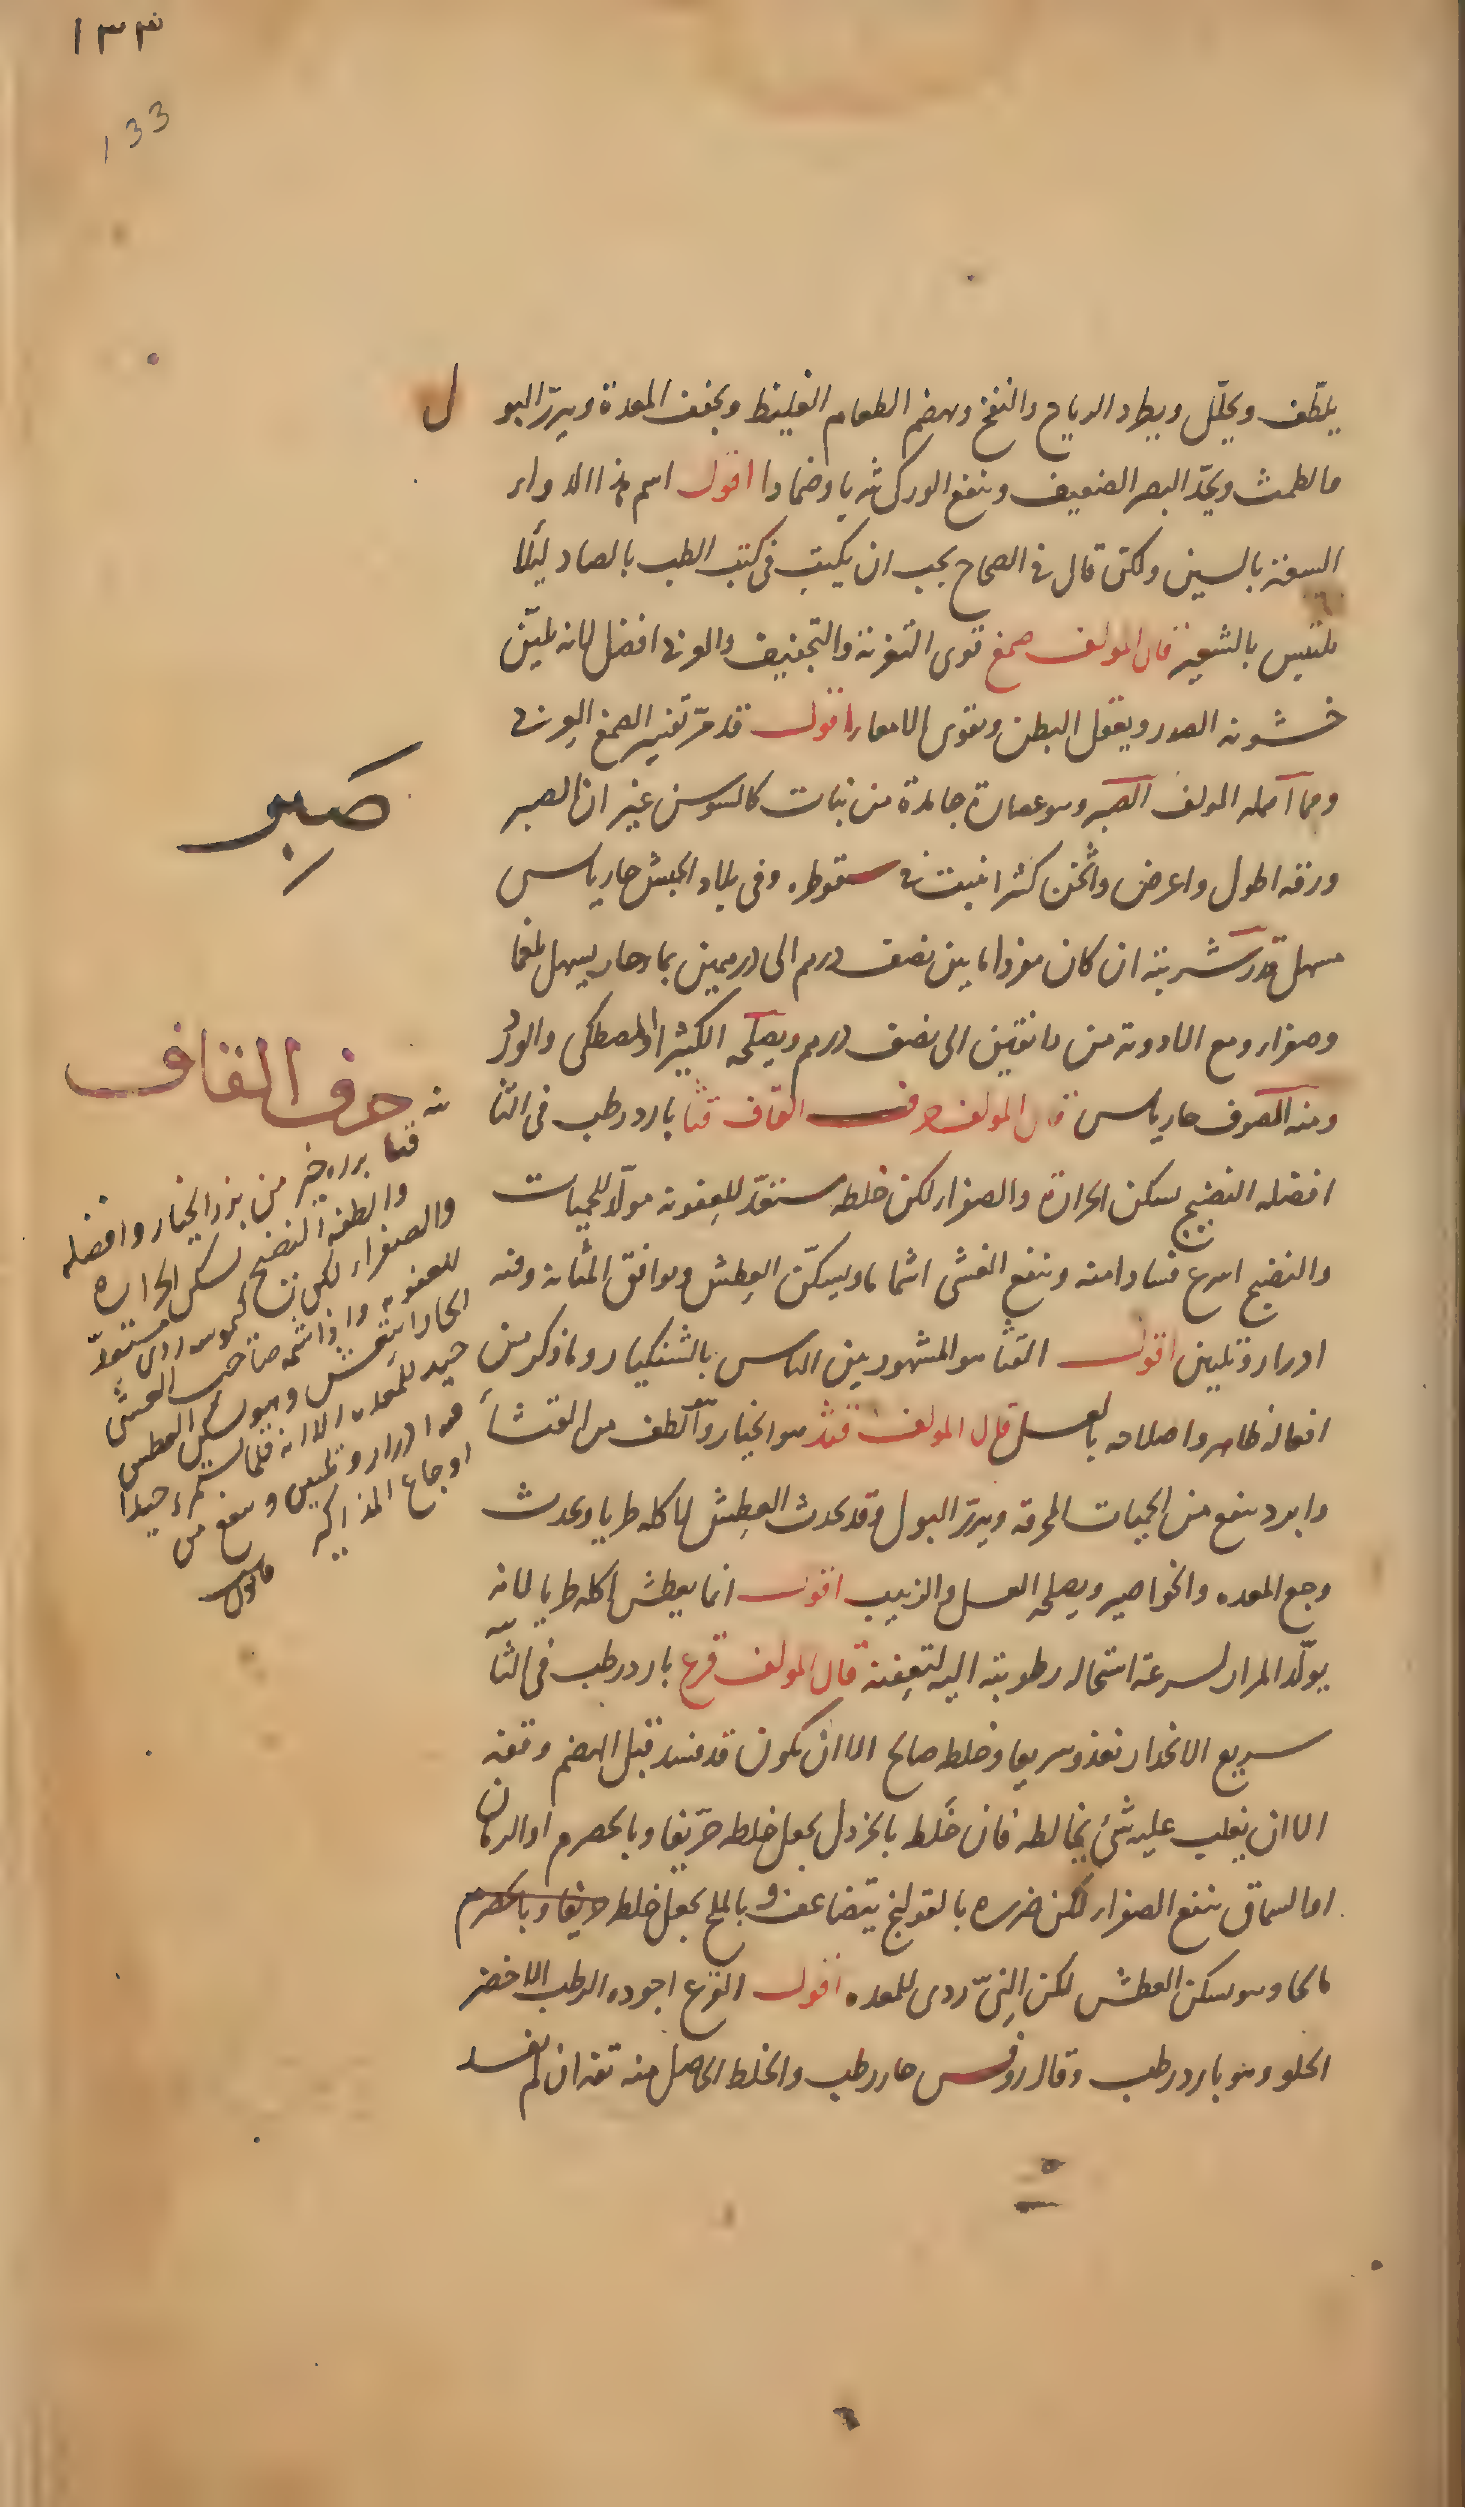 ١٣٣
133
يلطّف ويحلّل ويطرد الرياح والنفخ ويهضم الطعام الغليظ ويجفف المعدة ويدرّ البول
والطمث ويحدّ البصر الضعيف وينفع الورك شربا وضمادا اقول اسم هذا الدواء
السعتر بالسين ولكن قال في الصحاح يجب ان يكتب في كتب الطب بالصاد ليلا
يلتبس بالشعير قال المولف صمغ قوى التغرية والتجفيف والعربى افضل لانه يليّن
خشونة الصدر ويعقل البطن ويقوى الامعاء اقول قد مرّ تفسير الصمغ العربى
ومما اهمله المولف الصبر وهو عصارة جامدة من نبات كالسوسن غير ان الصبر
ورقه اطول واعرض واثخن كثيرا ينبت في سقوطره وفى بلاد الحبش حار يابس
مسهل قدر شربته ان كان مفردا ما بين نصف درهم الى درهمين بماء حار يسهل بلغما
وصفراء ومع الادوية من دانقين الى نصف درهم ويصلحه الكثيرا والمصطكى والورد
ومنه الصوف حار يابس قال المولف حرف القاف قثا بارد رطب فى الثا نيه
افضله النضيج يسكن الحرارة والصفراء لكن خلطه مستعدّ للعفونه مولّد للحميات
والنضيج اسرع فسادا منه وينفع الغشى اشماما ويسكّن العطش ويوافق المثانة وفيه
ادرار وتليين اقول القثا هو المشهور بين الناس بالشنكيار وما ذكر من
افعاله ظاهر واصلاحه بالعسل قال المولف قثد هو الخيار وألطف من القثاء
وابرد ينفع من الحميات المحرقة ويدرّ البول وقد يحدث العطش لاكله طريا ويحدث
وجع المعده والخواصير ويصلحه العسل والزبيب اقول انما يعطش اكله طريا لانه
يولّد المرار لسرعة استحاله رطوبته اليه لتعفنه قال المولف قرع بارد رطب فى الثا نيه
سريع الانحدار يغذو سريعا وخلطه صالح الا ان يكون قد فسد قبل الهضم وتفه
الا ان يغلب عليه شئ يخالطه فان خُلط بالخردل يجعل خلطه حرّيفا وبالحصرم او الرمان
او السماق ينفع الصفراء لكن ضرره بالقولنج يتضاعف وبالملح يجعل خلطه حريفا وبالحصرم
مالحا وهو يسكن العطش لكن النىّ ردى للمعده اقول القرع اجوده الرطب الاخضر
الحلو وهو بارد رطب وقال روفس حار رطب والخلط الحاصل منه تفه ان لم يفسد
صَبِر
حرف القاف
قثا بزره خير من بزر الخيار وافضله
والطفه النضيج يسكن الحراره
والصفراء لكن كيموسه ردى مستعدّ
للعفونه واذا شمه صاحب الغشى
الحار انتعش وهو يسكن العطش
جيد للمعده الا انه قلما يستمرء جيدا
فيه ادرار وتليين وينفع من
اوجاع المذاكير
قانون